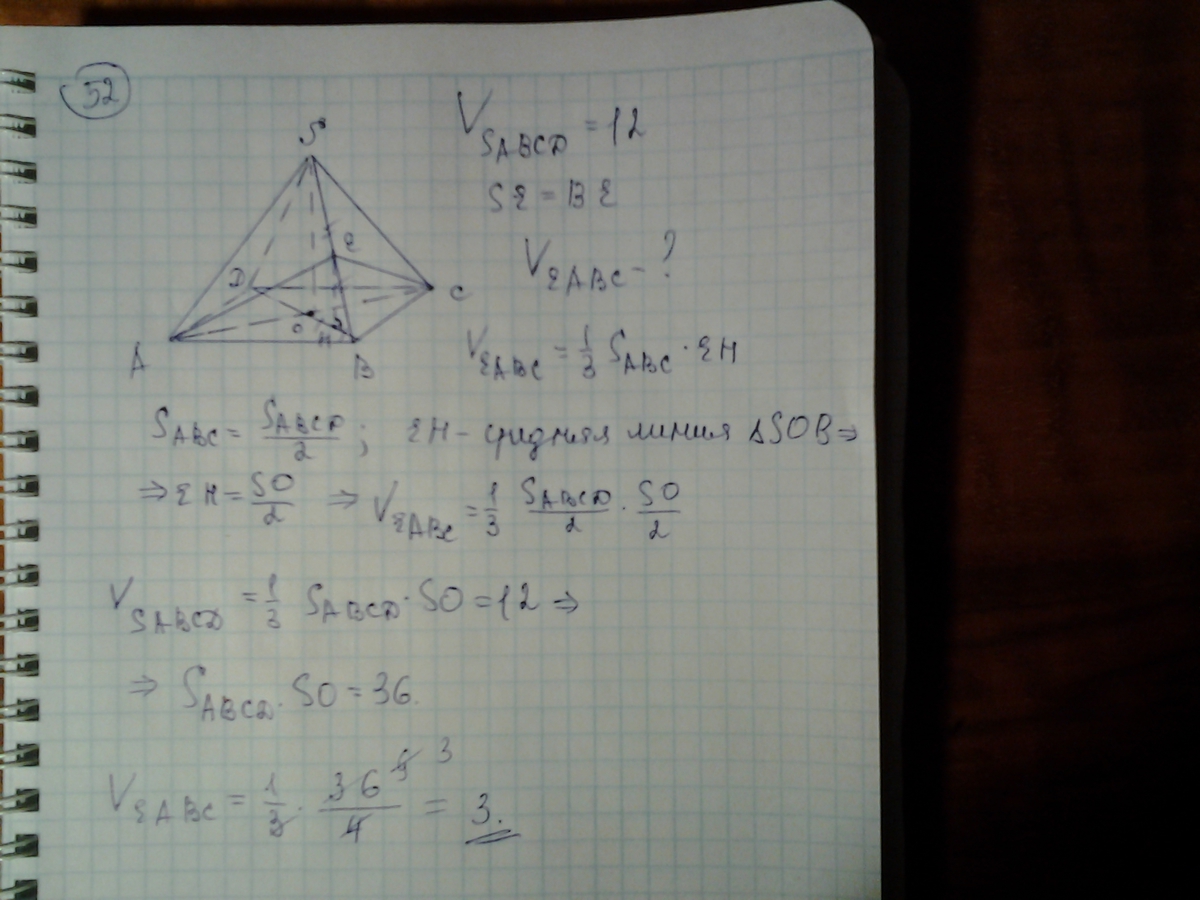 52
V_SABCD = 12
S
SE = BE
E
V_EABC - ?
D
C
O
H
A
B
V_EABC = 1/3 S_ABC · EH
S_ABC = S_ABCD/2 ; EH - средняя линия ΔSOB ⇒
⇒ EH = SO/2 ⇒ V_EABC = 1/3 S_ABCD/2 · SO/2
V_SABCD = 1/3 S_ABCD · SO = 12 ⇒
⇒ S_ABCD · SO = 36.
V_EABC = 1/3 · 36/4 9 3 = 3.